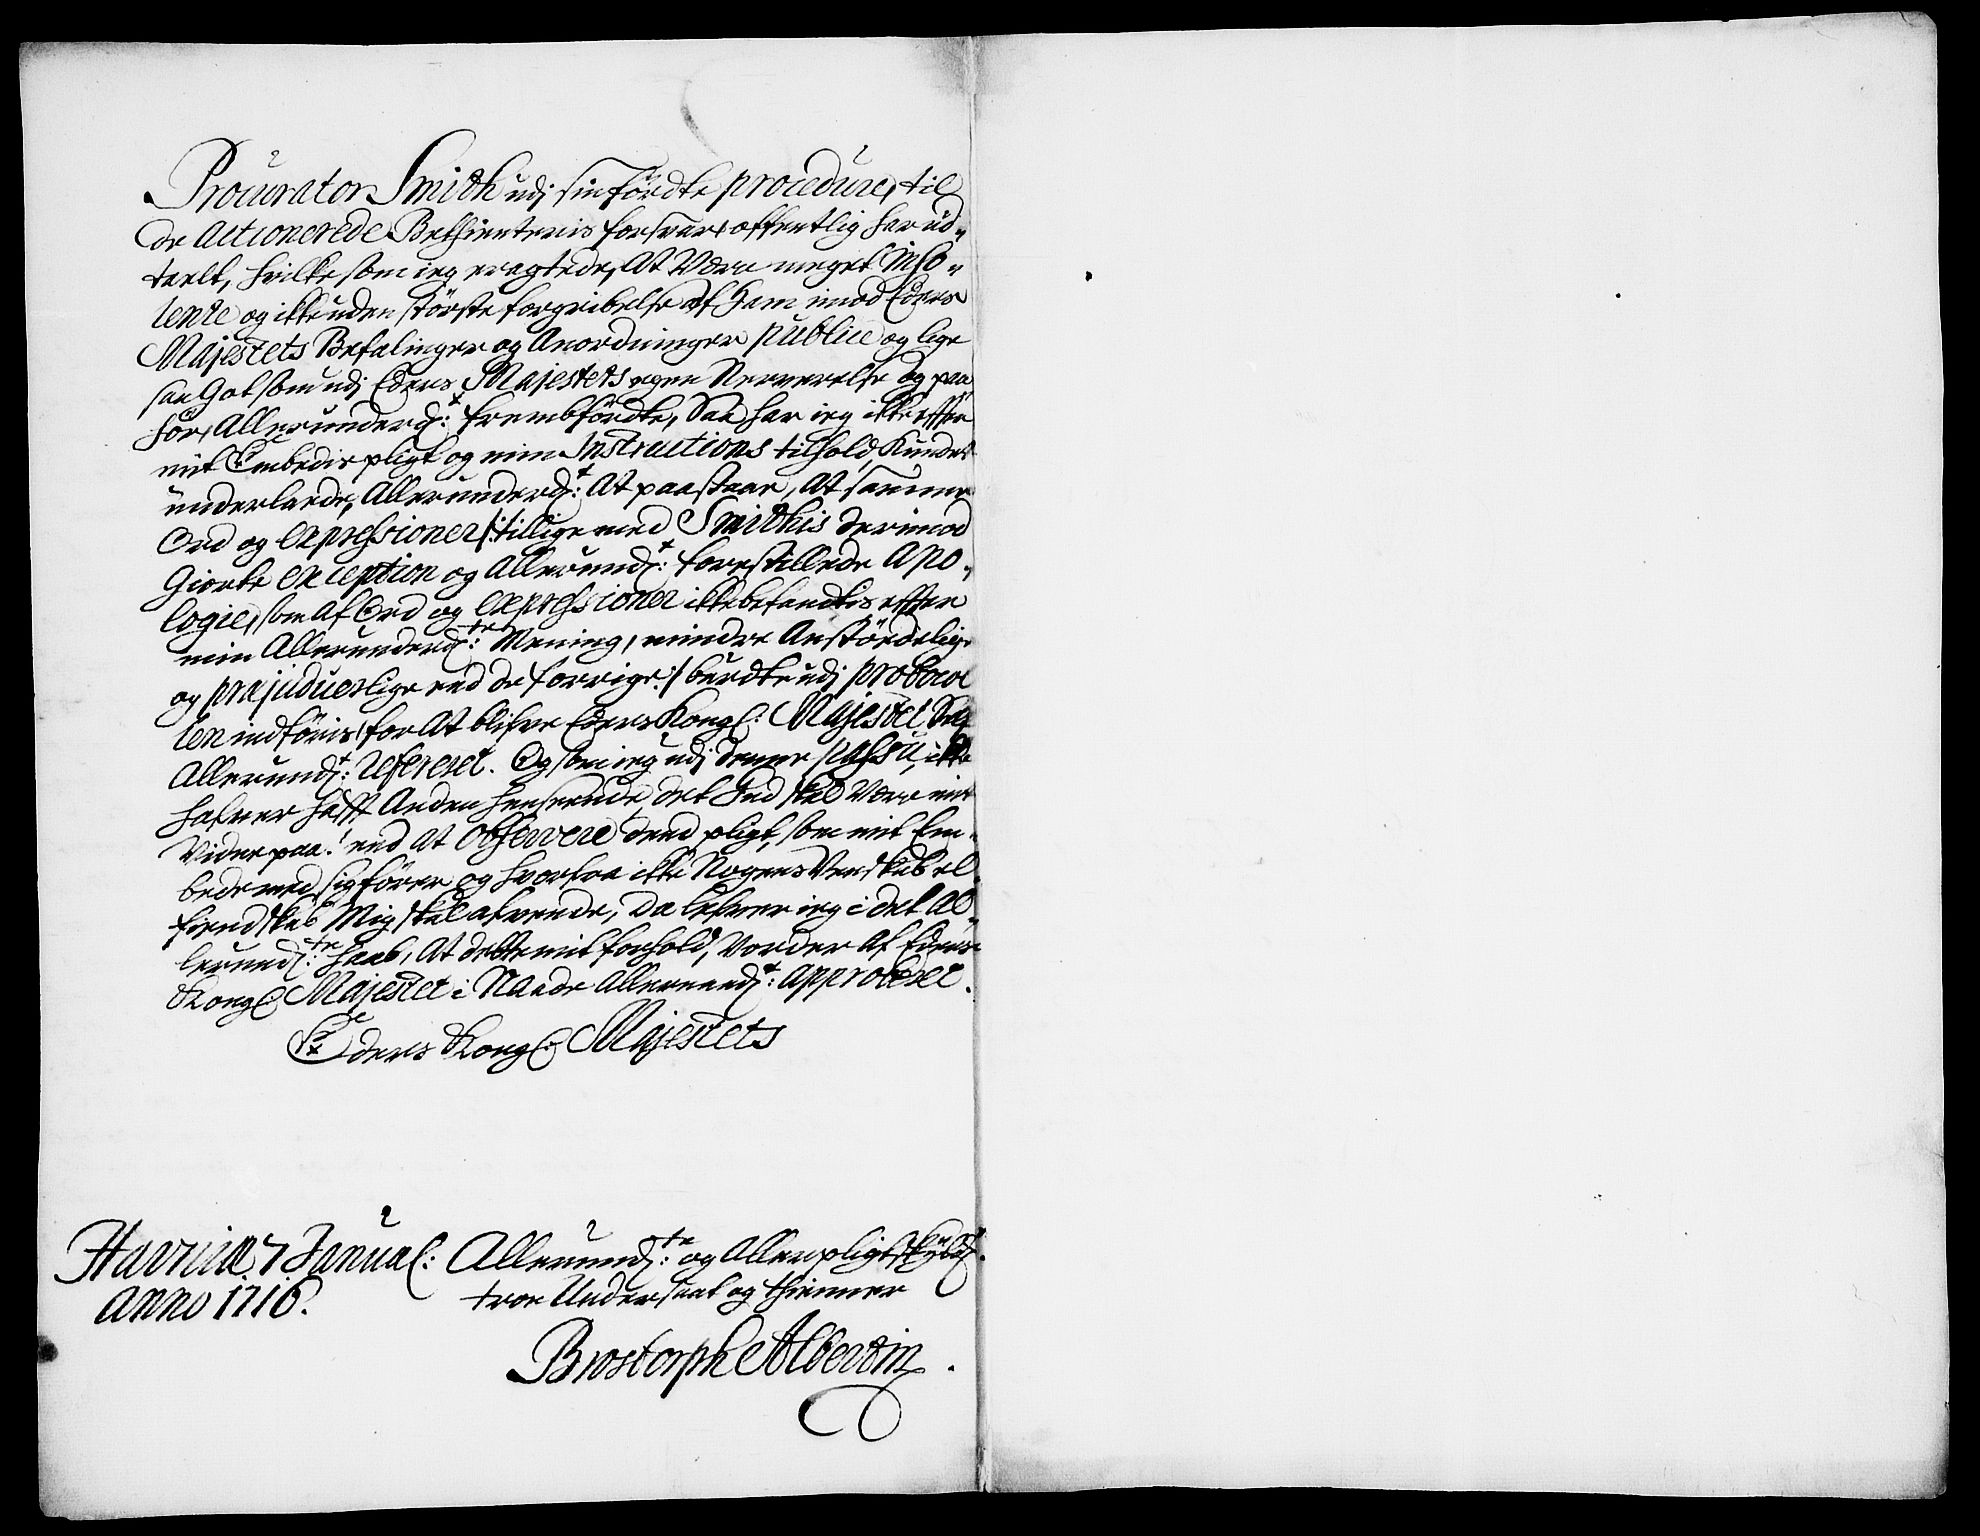 Procurator Smith udj sin fördte procedure, til
de Actionerede Bethienteris forsvar, offentlig har ud„
taelt, hvilke som ieg eragtede, At Være meget Inso„
lente og ikke uden störste forgribelse af Ham imod Eders
Majestets Befalinger og Anordninger publice og lige
saa Got som udj Eders Majestets egen Nerverelse og paa„
hör, Allerunderd:t frembfördte, Saa har ieg ikke effter
mit Embedis pligt og min Instructions tilhold, Kundet
underlaede, Allerunderd:t At paastaae, At samme
Ord og expressioner /: tillige med Smithis derimod
Giorte exception og Allerund:t forestillede Apo„
logie, som af Ord og expressioner ikke befandtis effter
min Allerunderd:te Mening, mindre Anstödelige
og præjudicerlige end de forrige :/ burdte udj protocol
len indföris, for At blifve Eders Kongl: Majestet
Allerund:t refereret. Og som ieg udj denne passu, ikke
hafver hafft Anden henseende, det Gud skal Være mit
Vidne paa! end At observere dend pligt, som mit Em„
bede med sig förer, og hvorfra ikke Nogens Venskab el.
fiendskab Mig skal afvende, Da lefver ieg i det Al„
lerund:te haab, At dette mit forhold, Vorder Af Eders
Kongl: Majestet i Naade Allernaad:t approberet.
Eders Kongl: Majestets
Havniæ 7 Januar:
Anno 1716.
Allerund:te og Allerpligtskyld:
troe Undersaat og thienner
Brostorph Albertin.